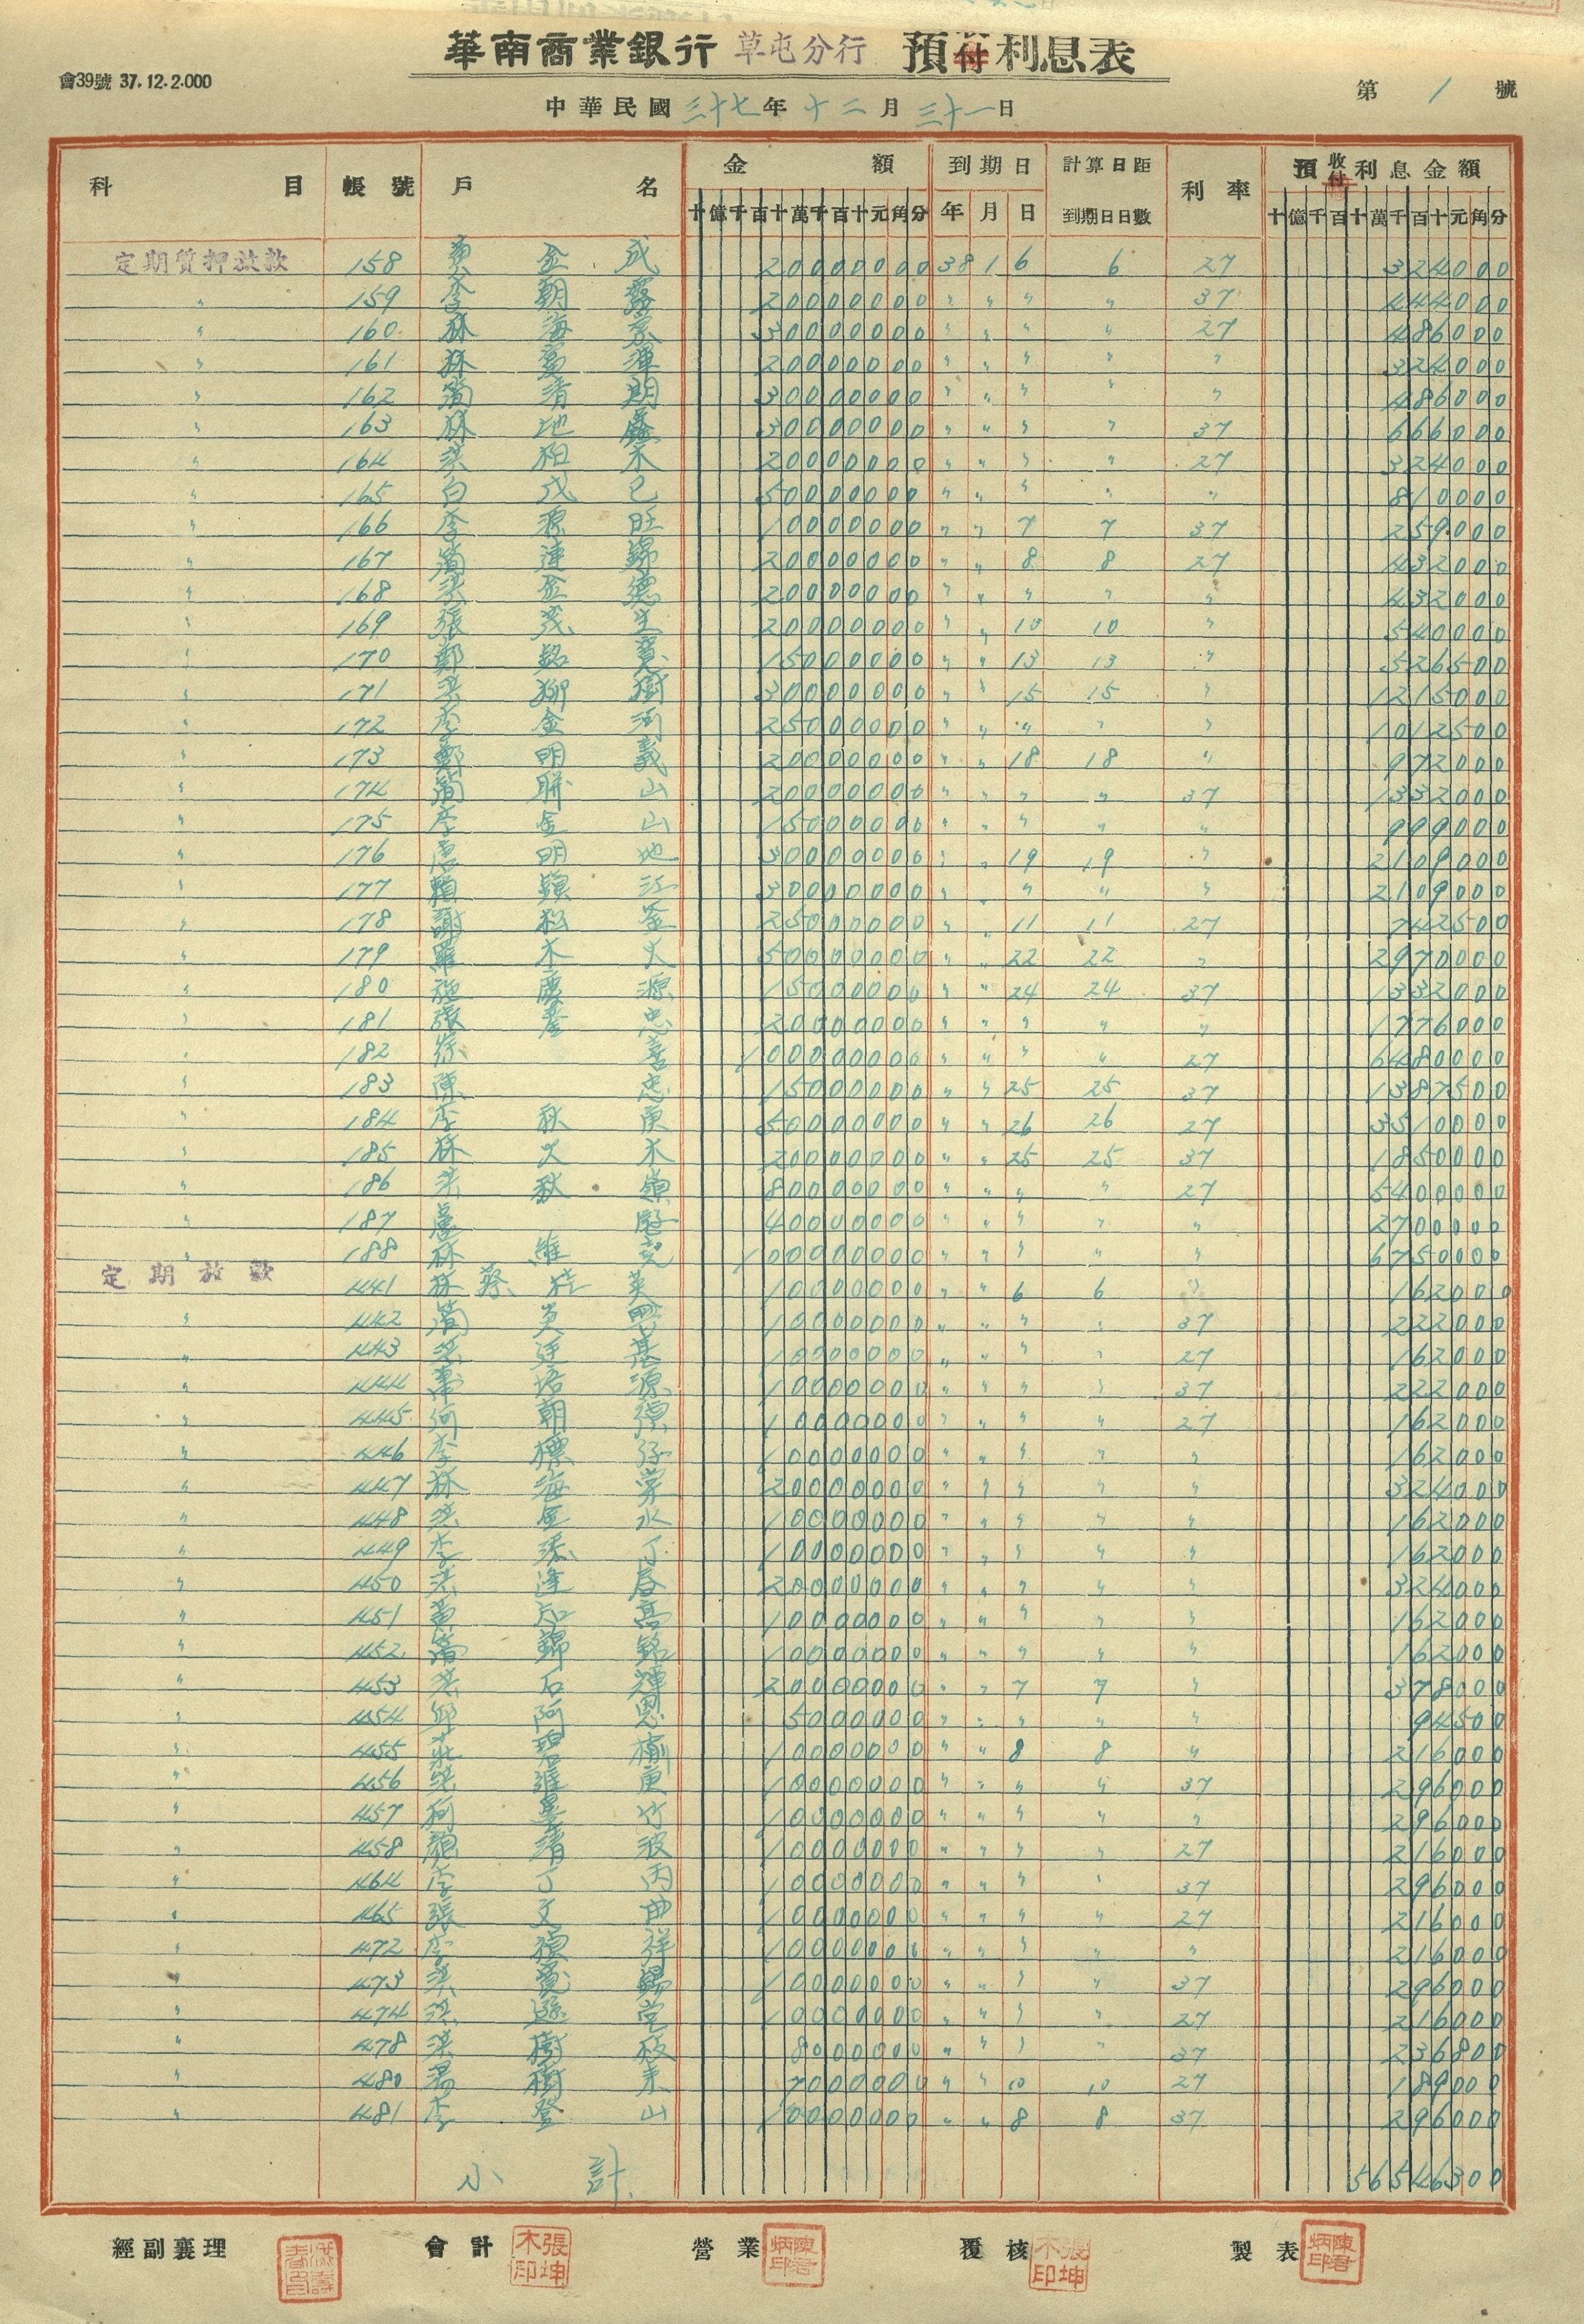 華南商業銀行 草屯分行 預付利息表
會39號 37.12.2.000
中華民國三十七年十二月三十一日
第 1 號
科目 帳號 戶名 金額 到期日 計算日距到期日日數 利率 預收付利息金額
十億千百十萬千百十元角分 年 月 日 十億千百十萬千百十元角分
定期質押放款 158 黃金成 20000000 38 1 6 6 27 324000
〃 159 李朝 20000000 〃 〃 〃 〃 37 444000
〃 160 林海 30000000 〃 〃 〃 〃 27 486000
〃 161 林 20000000 〃 〃 〃 〃 〃 324000
〃 162 簡清期 30000000 〃 〃 〃 〃 〃 486000
〃 163 林地 30000000 〃 〃 〃 〃 37 666000
〃 164 洪柏木 20000000 〃 〃 〃 〃 27 324000
〃 165 白戊己 50000000 〃 〃 〃 〃 〃 810000
〃 166 李源旺 10000000 〃 〃 7 7 37 259000
〃 167 簡連錦 20000000 〃 〃 8 8 27 432000
〃 168 洪金德 20000000 〃 〃 〃 〃 〃 432000
〃 169 張茂生 20000000 〃 〃 10 10 〃 540000
〃 170 鄭銘 15000000 〃 〃 13 13 〃 526500
〃 171 洪樹 30000000 〃 〃 15 15 〃 1215000
〃 172 李金河 25000000 〃 〃 〃 〃 〃 1012500
〃 173 鄭明義 20000000 〃 〃 18 18 〃 972000
〃 174 簡聯山 20000000 〃 〃 〃 〃 37 1332000
〃 175 李金山 15000000 〃 〃 〃 〃 〃 999000
〃 176 明地 30000000 〃 〃 19 19 〃 2109000
〃 177 賴江 30000000 〃 〃 〃 〃 〃 2109000
〃 178 謝松釜 25000000 〃 〃 11 11 27 742500
〃 179 羅木火 50000000 〃 〃 22 22 〃 2970000
〃 180 施慶源 15000000 〃 〃 24 24 37 1332000
〃 181 張忠 20000000 〃 〃 〃 〃 〃 1776000
〃 182 徐喜 100000000 〃 〃 〃 〃 27 6480000
〃 183 陳忠 15000000 〃 〃 25 25 37 1387500
〃 184 李秋庚 50000000 〃 〃 26 26 27 3510000
〃 185 林火木 20000000 〃 〃 25 25 37 1850000
〃 186 洪秋 80000000 〃 〃 〃 〃 27 5400000
〃 187 40000000 〃 〃 〃 〃 〃 2700000
〃 188 林維 100000000 〃 〃 〃 〃 〃 6750000
定期放款 441 林蔡桂英 10000000 〃 〃 6 6 〃 162000
〃 442 簡炎 10000000 〃 〃 〃 〃 37 222000
〃 443 洪廷基 10000000 〃 〃 〃 〃 27 162000
〃 444 源 10000000 〃 〃 〃 〃 37 222000
〃 445 何朝 10000000 〃 〃 〃 〃 27 162000
〃 446 李標 10000000 〃 〃 〃 〃 〃 162000
〃 447 林海 20000000 〃 〃 〃 〃 〃 324000
〃 448 洪水 10000000 〃 〃 〃 〃 〃 162000
〃 449 李丁 10000000 〃 〃 〃 〃 〃 162000
〃 450 洪逢春 20000000 〃 〃 〃 〃 〃 324000
〃 451 黃知高 10000000 〃 〃 〃 〃 〃 162000
〃 452 簡錦銘 10000000 〃 〃 〃 〃 〃 162000
〃 453 洪石輝 20000000 〃 〃 7 7 〃 378000
〃 454 邱阿恩 5000000 〃 〃 〃 〃 〃 94500
〃 455 莊碧榆 10000000 〃 〃 8 8 〃 216000
〃 456 庚 10000000 〃 〃 〃 〃 37 296000
〃 457 竹 10000000 〃 〃 〃 〃 〃 296000
〃 458 顏清波 10000000 〃 〃 〃 〃 27 216000
〃 464 李丁丙 10000000 〃 〃 〃 〃 37 296000
〃 465 張文曲 10000000 〃 〃 〃 〃 27 216000
〃 472 李德祥 10000000 〃 〃 〃 〃 〃 216000
〃 473 洪錫 10000000 〃 〃 〃 〃 37 296000
〃 474 洪遜堂 10000000 〃 〃 〃 〃 27 216000
〃 478 洪樹枝 8000000 〃 〃 〃 〃 37 236800
〃 480 湯樹 7000000 〃 〃 10 10 27 189000
〃 481 李登山 10000000 〃 〃 8 8 37 296000
小計 56546300
經副襄理 會計 張坤木印 營業 陳君炳印 覆核 張坤木印 製表 陳君炳印